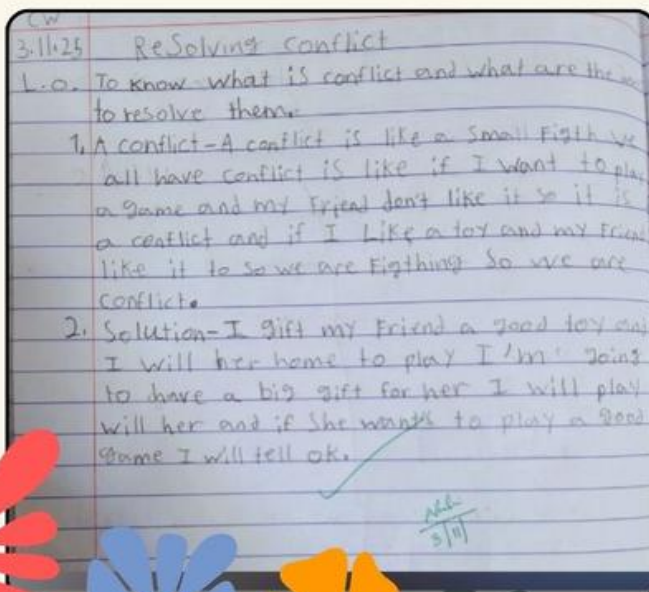 CW
3.11.25 Resolving conflict
L.O. To know what is conflict and what are the
to resolve them.
1. A conflict - A conflict is like a small figth we
all have conflict is like if I want to play
a game and my friend don't like it so it is
a conflict and if I Like a toy and my Friend
like it to so we are Figthing So we are
conflict.
2. Solution - I gift my Friend a good toy and
I will her home to play I'm going
to have a big gift for her I will play
will her and if She wants to play a good
game I will tell ok.
3/11